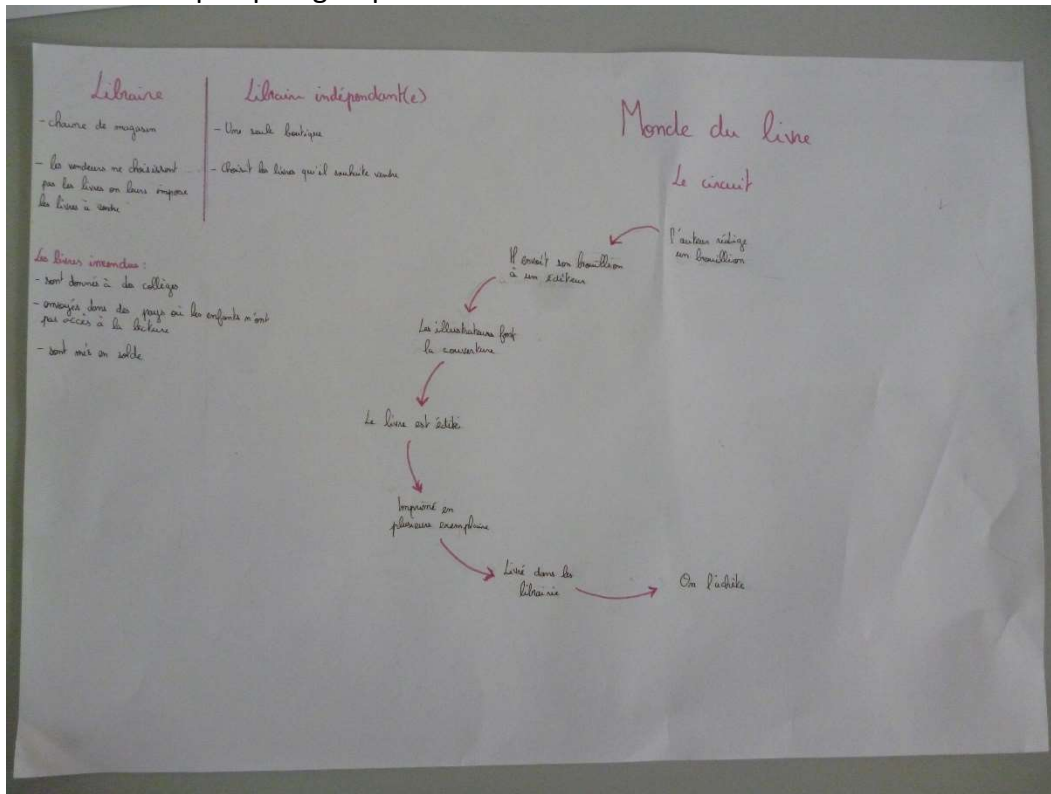 Libraire
- chaine de magasin
- les vendeurs ne choisissent
pas les livres on leurs impose
les livres à vendre
Libraire indépendant(e)
- Une seule boutique
- Choisit les livres qu'il souhaite vendre
Les livres invendus :
- sont donnés à des collèges
- envoyés dans des pays où les enfants n'ont
pas accès à la lecture
- sont mis en solde
Monde du livre
Le circuit
l'auteur rédige
un brouillion
Il envoit son brouillion
à un éditeur
Les illustrateurs font
la couverture
Le livre est édité
Imprimé en
plusieurs exemplaire
Livré dans les
librairie
On l'achète